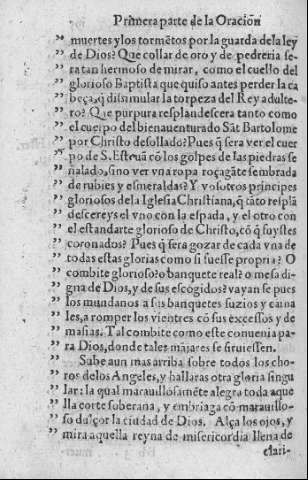 Primera parte de la Oración
muertes y los tormētos por la guarda dela ley
de Dios? Que collar de oro y de pedreria se-
ra tan hermoso de mirar, como el cuello del
glorioso Baptista que quiso antes perder la ca
beça, q̃ dissimular la torpeza del Rey adulte-
ro? Que purpura resplandescera tanto como
el cuerpo del bienauenturado Sāt Bartolome
por Christo desollado? Pues q̃ sera ver el cuer
po de S. Esteuā cō los golpes de las piedras se
ñalado, sino ver vna ropa roçagāte sembrada
de rubies y esmeraldas? Y vosotros principes
gloriosos dela Iglesia Christiana, q̃ tāto respla
descereys el vno con la espada, y el otro con
el estandarte glorioso de Christo, cō q̃ fuystes
coronados? Pues q̃ sera gozar de cada vna de
todas estas glorias como si fuesse propria? O
combite glorioso? o banquete real? o mesa di-
gna de Dios, y de sus escogidos? vayan se pues
los mundanos a sus banquetes suzios y carna
les, a romper los vientres cō sus excessos y de
masias. Tal combite como este conuenia pa-
ra Dios, donde tales mājares se siruiessen.
Sube aun mas arriba sobre todos los cho-
ros delos Angeles, y hallaras otra gloria singu
lar: la qual marauillosamēte alegra toda aque
lla corte soberana, y embriaga cō marauillo-
so dulçor la ciudad de Dios. Alça los ojos, y
mira aquella reyna de misericordia llena de
clari-